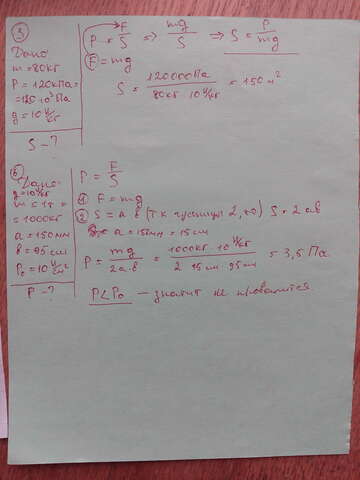 ③
Дано
m = 80кг
P = 120кПа =
= 120·10³ Па
g = 10 Н/кг
S - ?
P = F/S => mg/S => S = P/mg
F = mg
S = 120000Па / 80кг · 10 Н/кг = 150 м²
⑥
Дано:
g = 10 Н/кг
m = 1т =
= 1000кг
a = 150мм
в = 95 см
P₀ = 10 Н/см²
P - ?
P = F/S
① F = mg
② S = a·в (т.к гусениц 2, то) S = 2 a·в
a = 150мм = 15см
P = mg / 2a·в = 1000кг · 10 Н/кг / 2 · 15 см · 95 см = 3,5 Па.
P < P₀ — значит не провалится